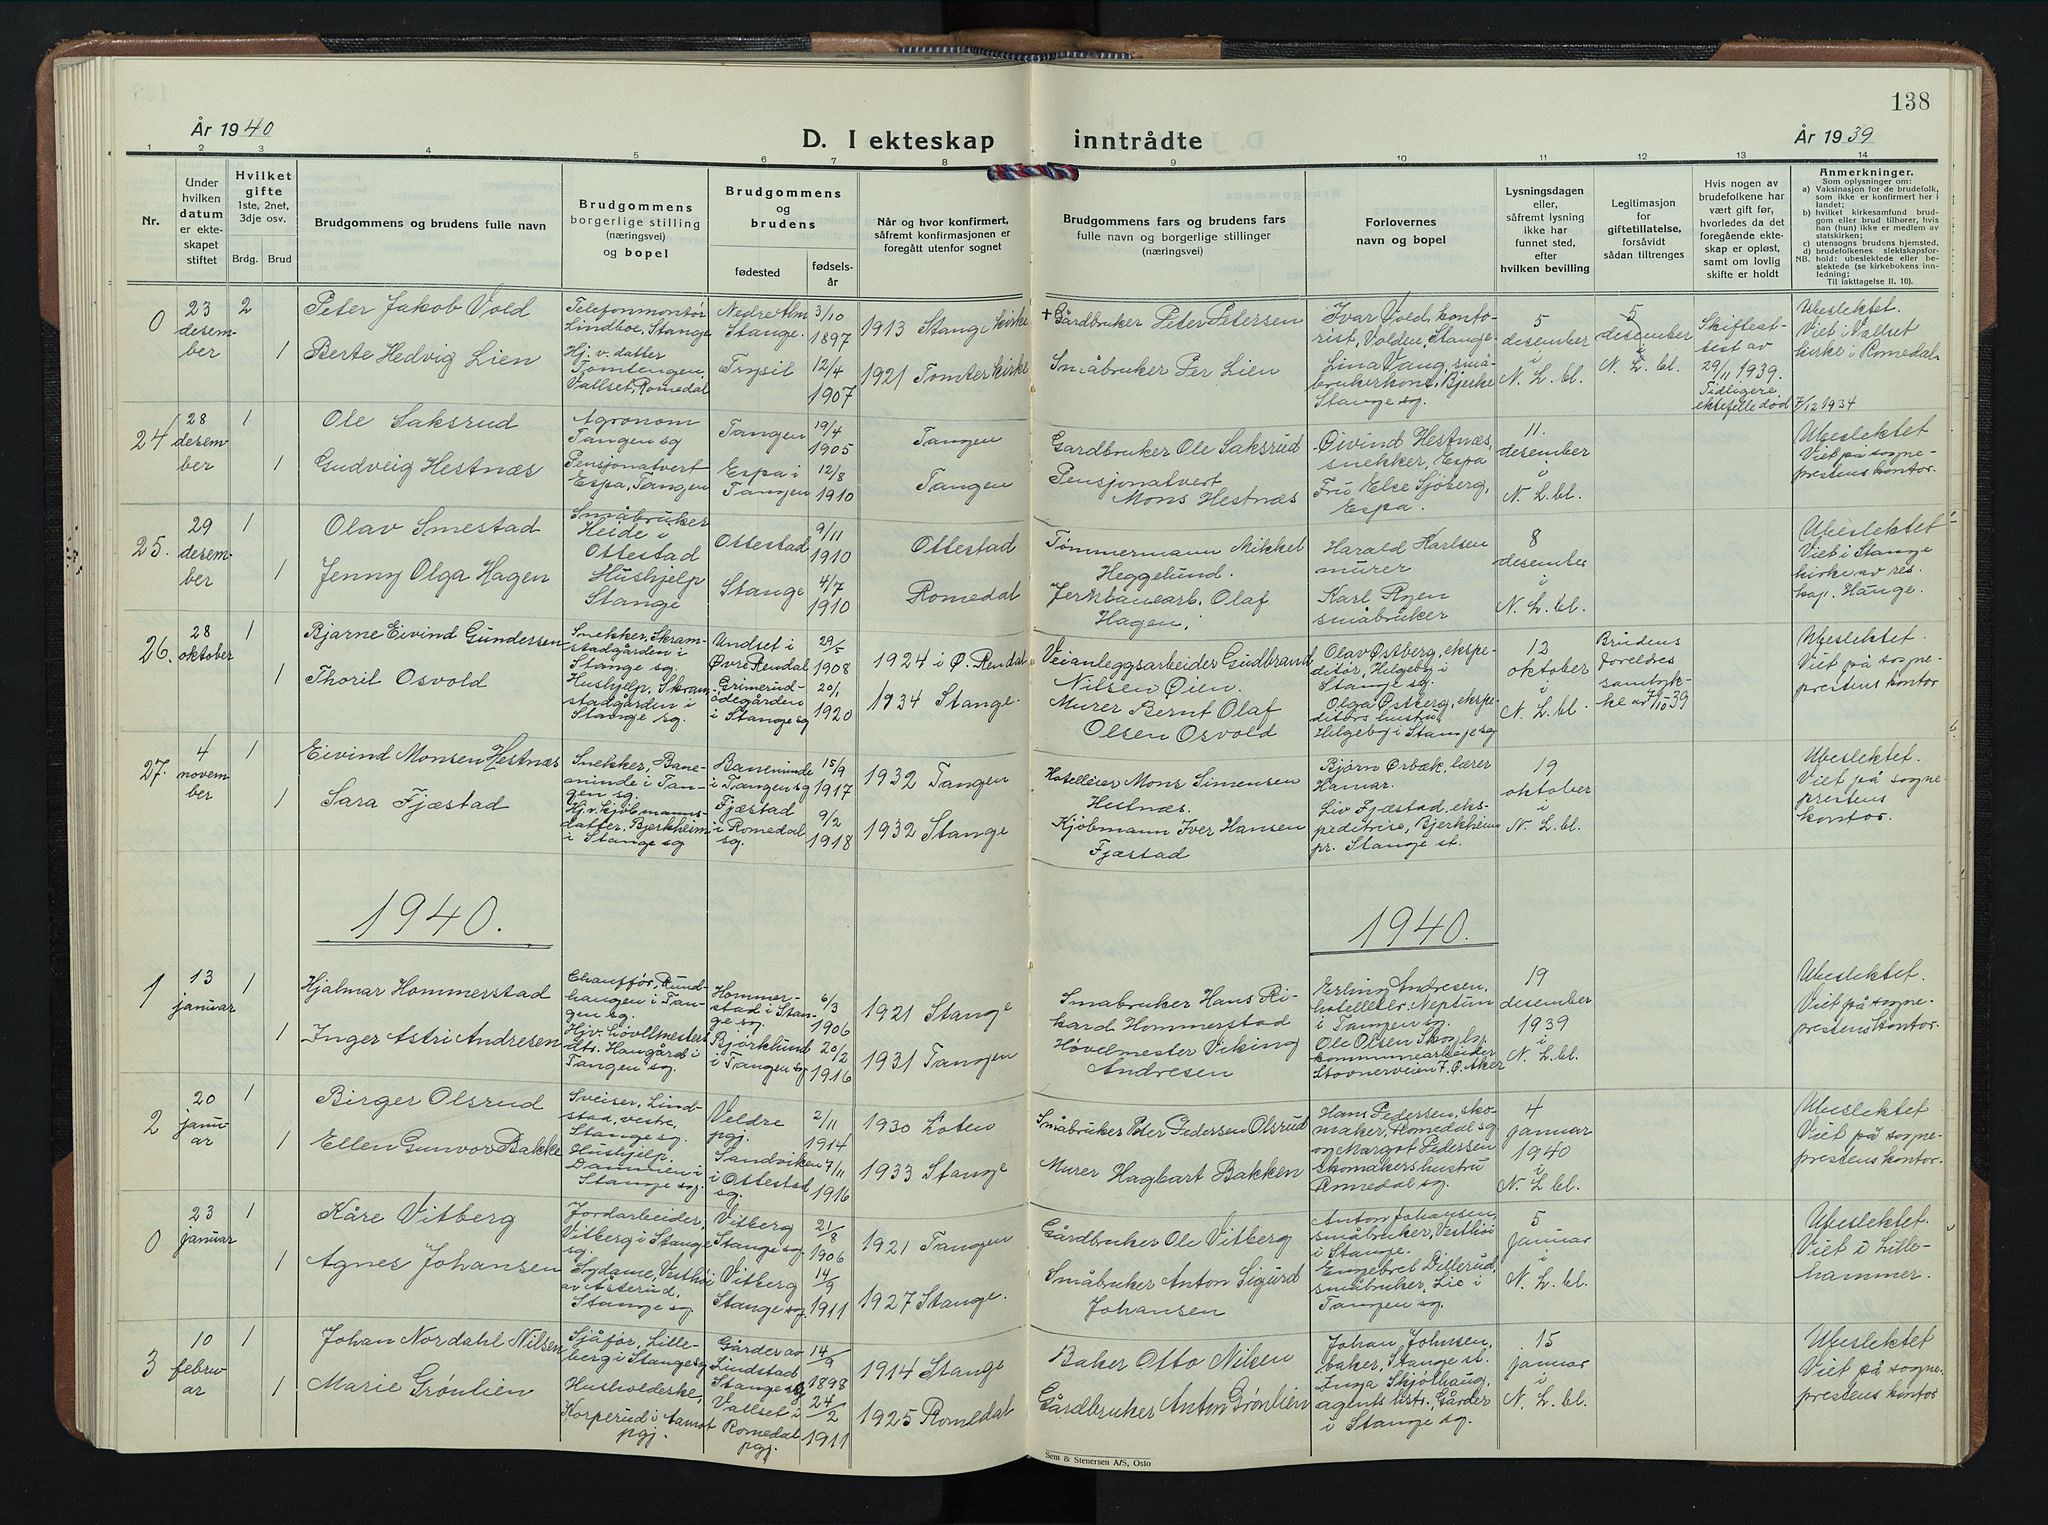 138
År 1940
D. I ekteskap inntrådte
År 1939
1 2 3 4 5 6 7 8 9 10 11 12 13 14
Nr.
Under hvilken datum er ekteskapet stiftet
Hvilket gifte 1ste, 2net, 3dje osv.
Brdg. Brud
Brudgommens og brudens fulle navn
Brudgommens borgerlige stilling (næringsvei) og bopel
Brudgommens og brudens
fødested
fødselsår
Når og hvor konfirmert, såfremt konfirmasjonen er foregått utenfor sognet
Brudgommens fars og brudens fars fulle navn og borgerlige stillinger (næringsvei)
Forlovernes navn og bopel
Lysningsdagen eller, såfremt lysning ikke har funnet sted, efter hvilken bevilling
Legitimasjon for giftetillatelse, forsåvidt sådan tiltrenges
Hvis nogen av brudefolkene har vært gift før, hvorledes da det foregående ekteskap er opløst, samt om lovlig skifte er holdt
Anmerkninger.
Som oplysninger om:
a) Vaksinasjon for de brudefolk, som ikke er konfirmert her i landet;
b) hvilket kirkesamfund brudgom eller brud tilhører, hvis han (hun) ikke er medlem av statskirken;
c) utensogns brudens hjemsted.
d) brudefolkenes slektskapsforhold: ubeslektede eller beslektede (se kirkebokens innledning;
NB. Til iakttagelse II. 10).
0
23 desember
2
Peter Jakob Vold
Telefonmontør Lindboe, Stange
Nedre Alm Stange.
3/10 1897
1913 Stange kirke
+ Gårdbruker Peter Petersen
Ivar Vold, kontorist, Volden, Stange.
5 desember i N. L. bl.
5 desember i N. L. bl.
Skifteattest av 29/11 1939. Tidligere ektefelle død 7/12 1934
Ubeslektet. Viet i Vallset kirke i Romedal
1
Berte Hedvig Lien
Hj. v. datter Tomtengen, Vallset, Romedal
Trysil
12/4 1907
1921 Tomter kirke
Småbruker Per Lien
Lina Vang, småbrukerkone, Bjerke Stange sg.
24
28 desember
1
Ole Saksrud
Agronom Tangen sg
Tangen
19/4 1905
Tangen
Gardbruker Ole Saksrud
Øivind Hestnæs, snekker, Espa
11. desember i N. L. bl.
Ubeslektet Viet på sogneprestens kontor.
1
Gudveig Hestnæs
Pensjonatvert Espa, Tangen
Espa i Tangen
12/8 1910
Tangen
Pensjonatvert Mons Hestnæs
Fru Else Sjøberg, Espa.
25.
29 desember
1
Olav Smestad
Småbruker Heide i Ottestad
Ottestad
9/11 1910
Ottestad
Tømmermann Mikkel Heggelund.
Harald Karlsen murer
8 desember i N. L. bl.
Ubeslektet Viet i Stange kirke av res. kap. Hauge.
1
Jenny Olga Hagen
Hushjelp Stange
Stange
4/7 1910
Romedal
Jernbanearb. Olaf Hagen,
Karl Ryen småbruker
26.
28 oktober
1
Bjarne Eivind Gundersen
Snekker, Skramstadgården i Stange sg.
Undset i Øvre Rendal
29/5 1908
1924 i Ø. Rendal
Veianleggsarbeider Gudbrand Nilsen Øien.
Olav Østberg, ekspeditør, Helgeby i Stange sg.
12 oktober i N. L. bl.
Brudens foreldres samtykke av 7/10 39
Ubeslektet. Viet på sogneprestens kontor
1
Thoril Osvold
Hushjelp, Skramstadgården i Stange sg.
Grimerud-ødegården i Stange sg
20/1 1920
1934 Stange.
Murer Bernt Olaf Olsen Osvold
Olga Østberg, ekspeditørs hustru, Helgeby i Stange sg
27.
4 november
1
Eivind Monsen Hestnæs
Snekker, Baneminde i Tangen sg.
Baneminde i Tangen sg
15/9 1917
1932 Tangen
Hotelleier Mons Simensen Hestnæs.
Bjørn Ørbæk, lærer Hamar.
19 oktober i N. L. bl.
Ubeslektet. Viet på sogneprestens kontor.
1
Sara Fjæstad
Hjv. kjøbmannsdatter, Bjerkheim i Stange sg
Fjæstad i Romedal sg.
9/2 1918
1932 Stange
Kjøbmann Iver Hansen Fjæstad
Liv Fjæstad, ekspeditrise, Bjerkheim pr. Stange st.
1940.
1940.
1
13 januar
1
Hjalmar Hommerstad
Chauffør, Rundhaugen i Tangen sg.
Hommerstad i Stange sg.
6/3 1906
1921 Stange
Småbruker Hans Rikard Hommerstad
Erling Andresen, hotelleier, Neptun i Tangen sg.
19 desember 1939 i N. L. bl.
Ubeslektet. Viet på sogneprestens kontor.
1
Inger Astri Andresen
Hjv. høvelmesters dtr. Haugård i Tangen sg.
Bjørklund i Tangen sg
20/2 1916
1931 Tangen
Høvelmester Viking Andresen
Ole Olsen kommunearbeider Stovnerveien 7. Ø. Aker
2
20 januar
1
Birger Olsrud
Sveiser, Lindstad, vestre, Stange sg.
Veldre pgj.
2/11 1914
1930 Løten
Småbruker Peter Pedersen Olsrud
Hans Pedersen, skomaker, Romedal sg
4 januar 1940 i N. L. bl.
Ubeslektet Viet på sogneprestens kontor.
1
Ellen Gunvor Bakke
Hushjelp. Dammen i Stange sg.
Sandviken i Ottestad sg.
7/11 1916
1933 Stange
Murer Hagbart Bakken
og Margot Pedersen skomakershustru Romedal sg.
0
23 januar
1
Kåre Vitberg
Jordarbeider, Vitberg i Stange sg.
Vitberg Stange sg.
21/8 1906
1921 Tangen
Gårdbruker Ole Vitberg
Anton Johansen, småbruker, Vesthøi i Stange.
5 januar i N. L. bl.
Ubeslektet. Viet i Lillehammer.
1
Agnes Johansen
Sydame, Vesthøi av Åsterud, Stange sg.
Vitberg Stange sg.
14/9 1911
1927 Stange.
Småbruker Anton Sigurd Johansen
Engebret Dillerud, småbruker, Lie i Tangen sg.
3
10 februar
1
Johan Nordahl Nilsen
Sjåfør, Lilleberg i Stange sg
Gårder av Lindstad Stange sg
14/9 1898
1914 Stange
Baker Otto Nilsen
Johan Johnsen, baker, Stange st.
15 januar i N. L. bl.
Ubeslektet Viet på sogneprestens kontor
1
Marie Grønlien
Husholderske, Korperud i Aamot pgj.
Vallset i Romedal pgj.
24/2 1911
1925 Romedal
Gårdbruker Anton Grønlien
Inga Skjølhaug, agents hstr. Gårder i Stange sg.
Sem & Stenersen A/S, Oslo